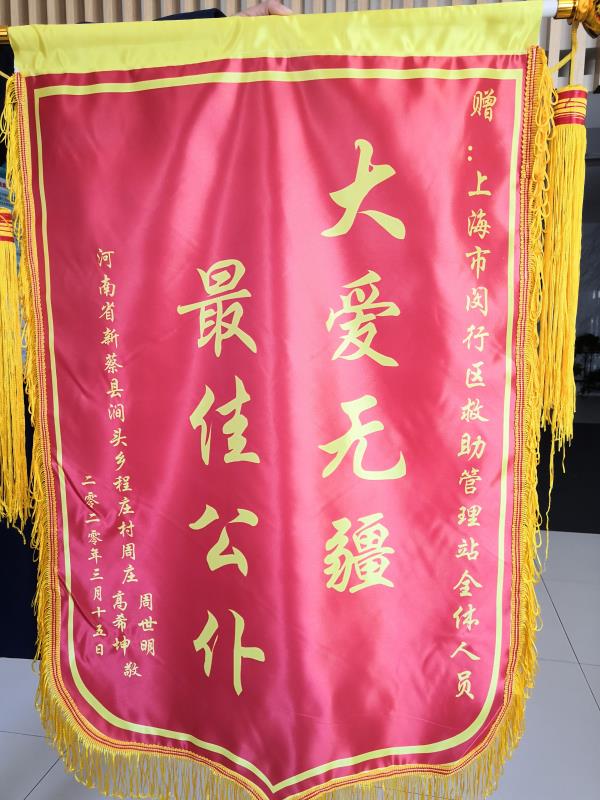 赠：上海市闵行区救助管理站全体人员
大爱无疆
最佳公仆
河南省新蔡县涧头乡程庄村周庄
周世明
高希坤
敬
二零二零年三月十五日